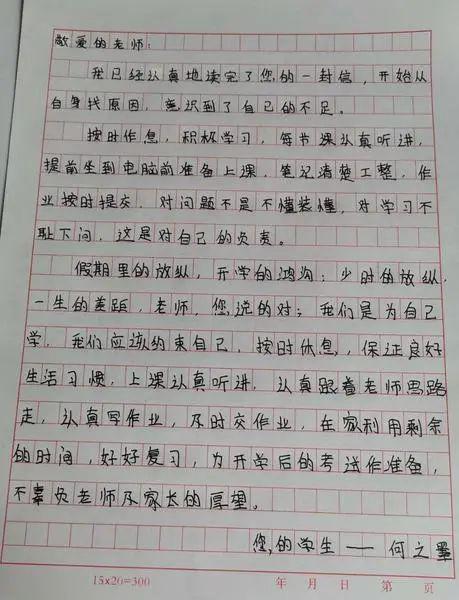 敬爱的老师:
我已经认真地读完了您的一封信,开始从
自身找原因,意识到了自己的不足。
按时作息,积极学习,每节课认真听讲,
提前坐到电脑前准备上课,笔记清楚工整,作
业按时提交,对问题不是不懂装懂,对学习不
耻下问,这是对自己的负责。
假期里的放纵,开学的鸿沟;少时的放纵,
一生的差距,老师,您说的对;我们是为自己
学,我们应该约束自己,按时休息,保证良好
生活习惯,上课认真听讲,认真跟着老师思路
走,认真写作业,及时交作业,在家利用剩余
的时间,好好复习,为开学后的考试作准备,
不辜负老师及家长的厚望。
您的学生——何之墨
15×20=300 年 月 日 第 页